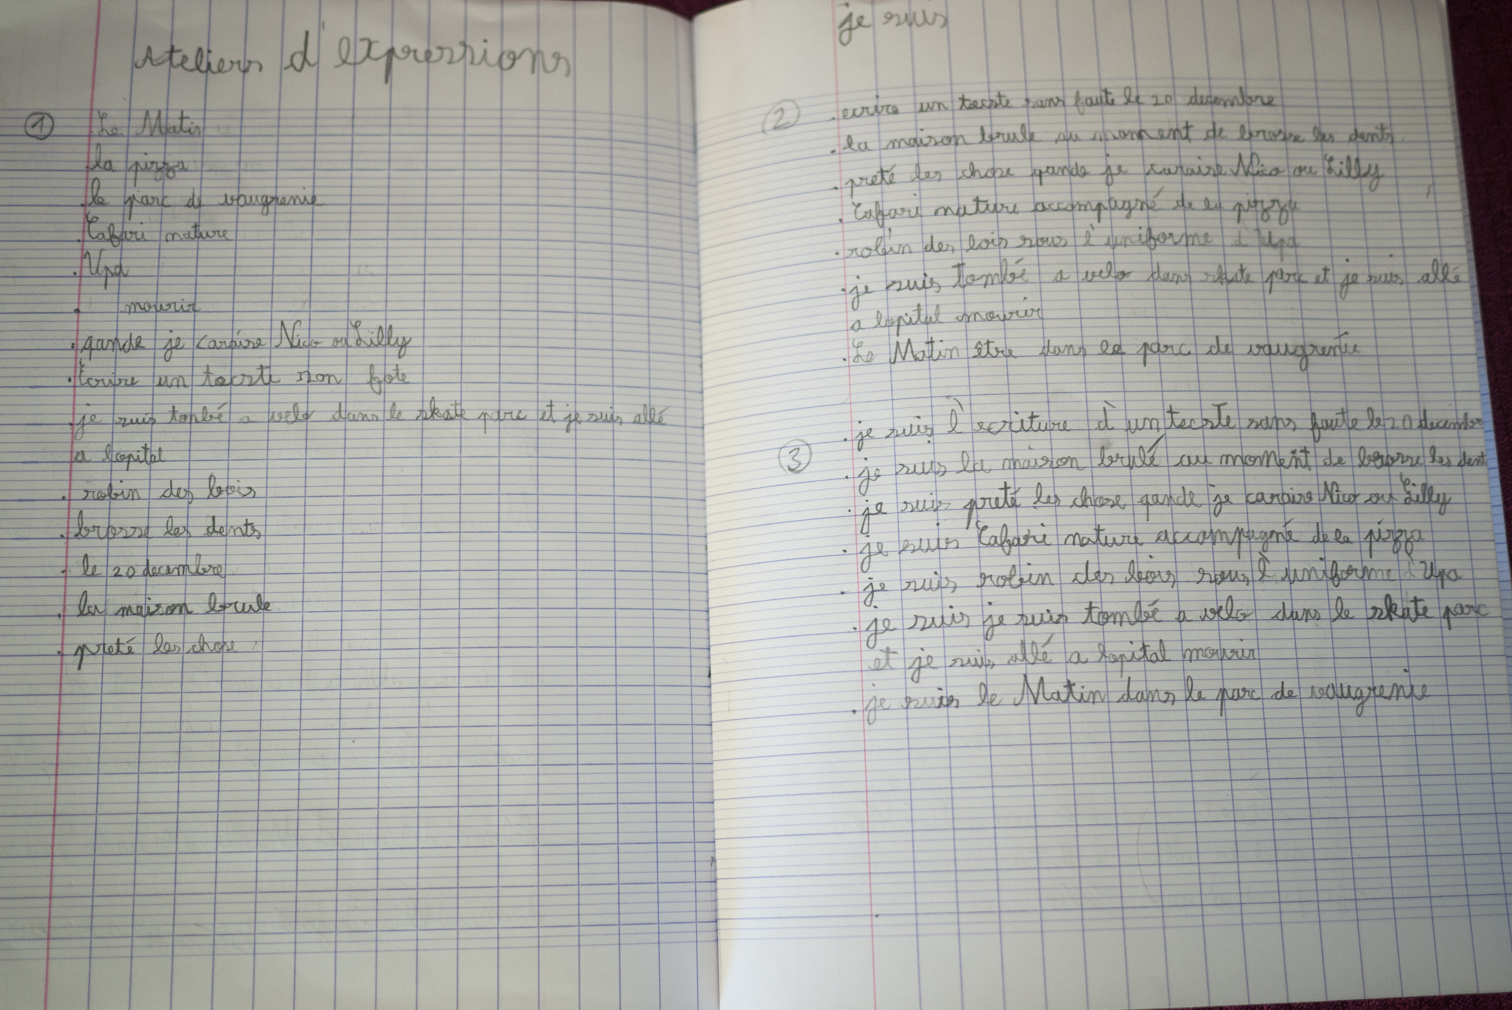 Ateliers d'expressions
① Le Matin
la pizza
le parc de vaugrenie
. Cafari nature
. Upa
. mourir
. qande je caraire Nico ou Lilly
. Ecrire un tecste non fote
je suis tonbé a velo dans le skate parc et je suis allé
a lopital
. robin des bois
. brosse les dents
. le 20 decembre
. la maison brule
. preté les chose
je suis
② . ecrire un tecste sans faute le 20 decembre
. la maison brule au moment de brosse les dents
. preté les chose qande je caraire Nico ou Lilly
. Cafari nature accompagné de la pizza
. robin des bois sous l'uniforme d'Upa
. je suis tombé a velo dans skate parc et je suis allé
a lopital mourir
. Le Matin être dans le parc de vaugrenie
. je suis l'ecriture d'un tecste sans faute le 20 decembre
③ . je suis la maison brulé au moment de brosse les dent
. je suis preté les chose qande je caraire Nico ou Lilly
. je suis Cafari nature accompagné de la pizza
. je suis robin des bois sous l'uniforme d'Upa
. je suis je suis tombé a velo dans le skate parc
et je suis allé a lopital mourir
. je suis le Matin dans le parc de vaugrenie